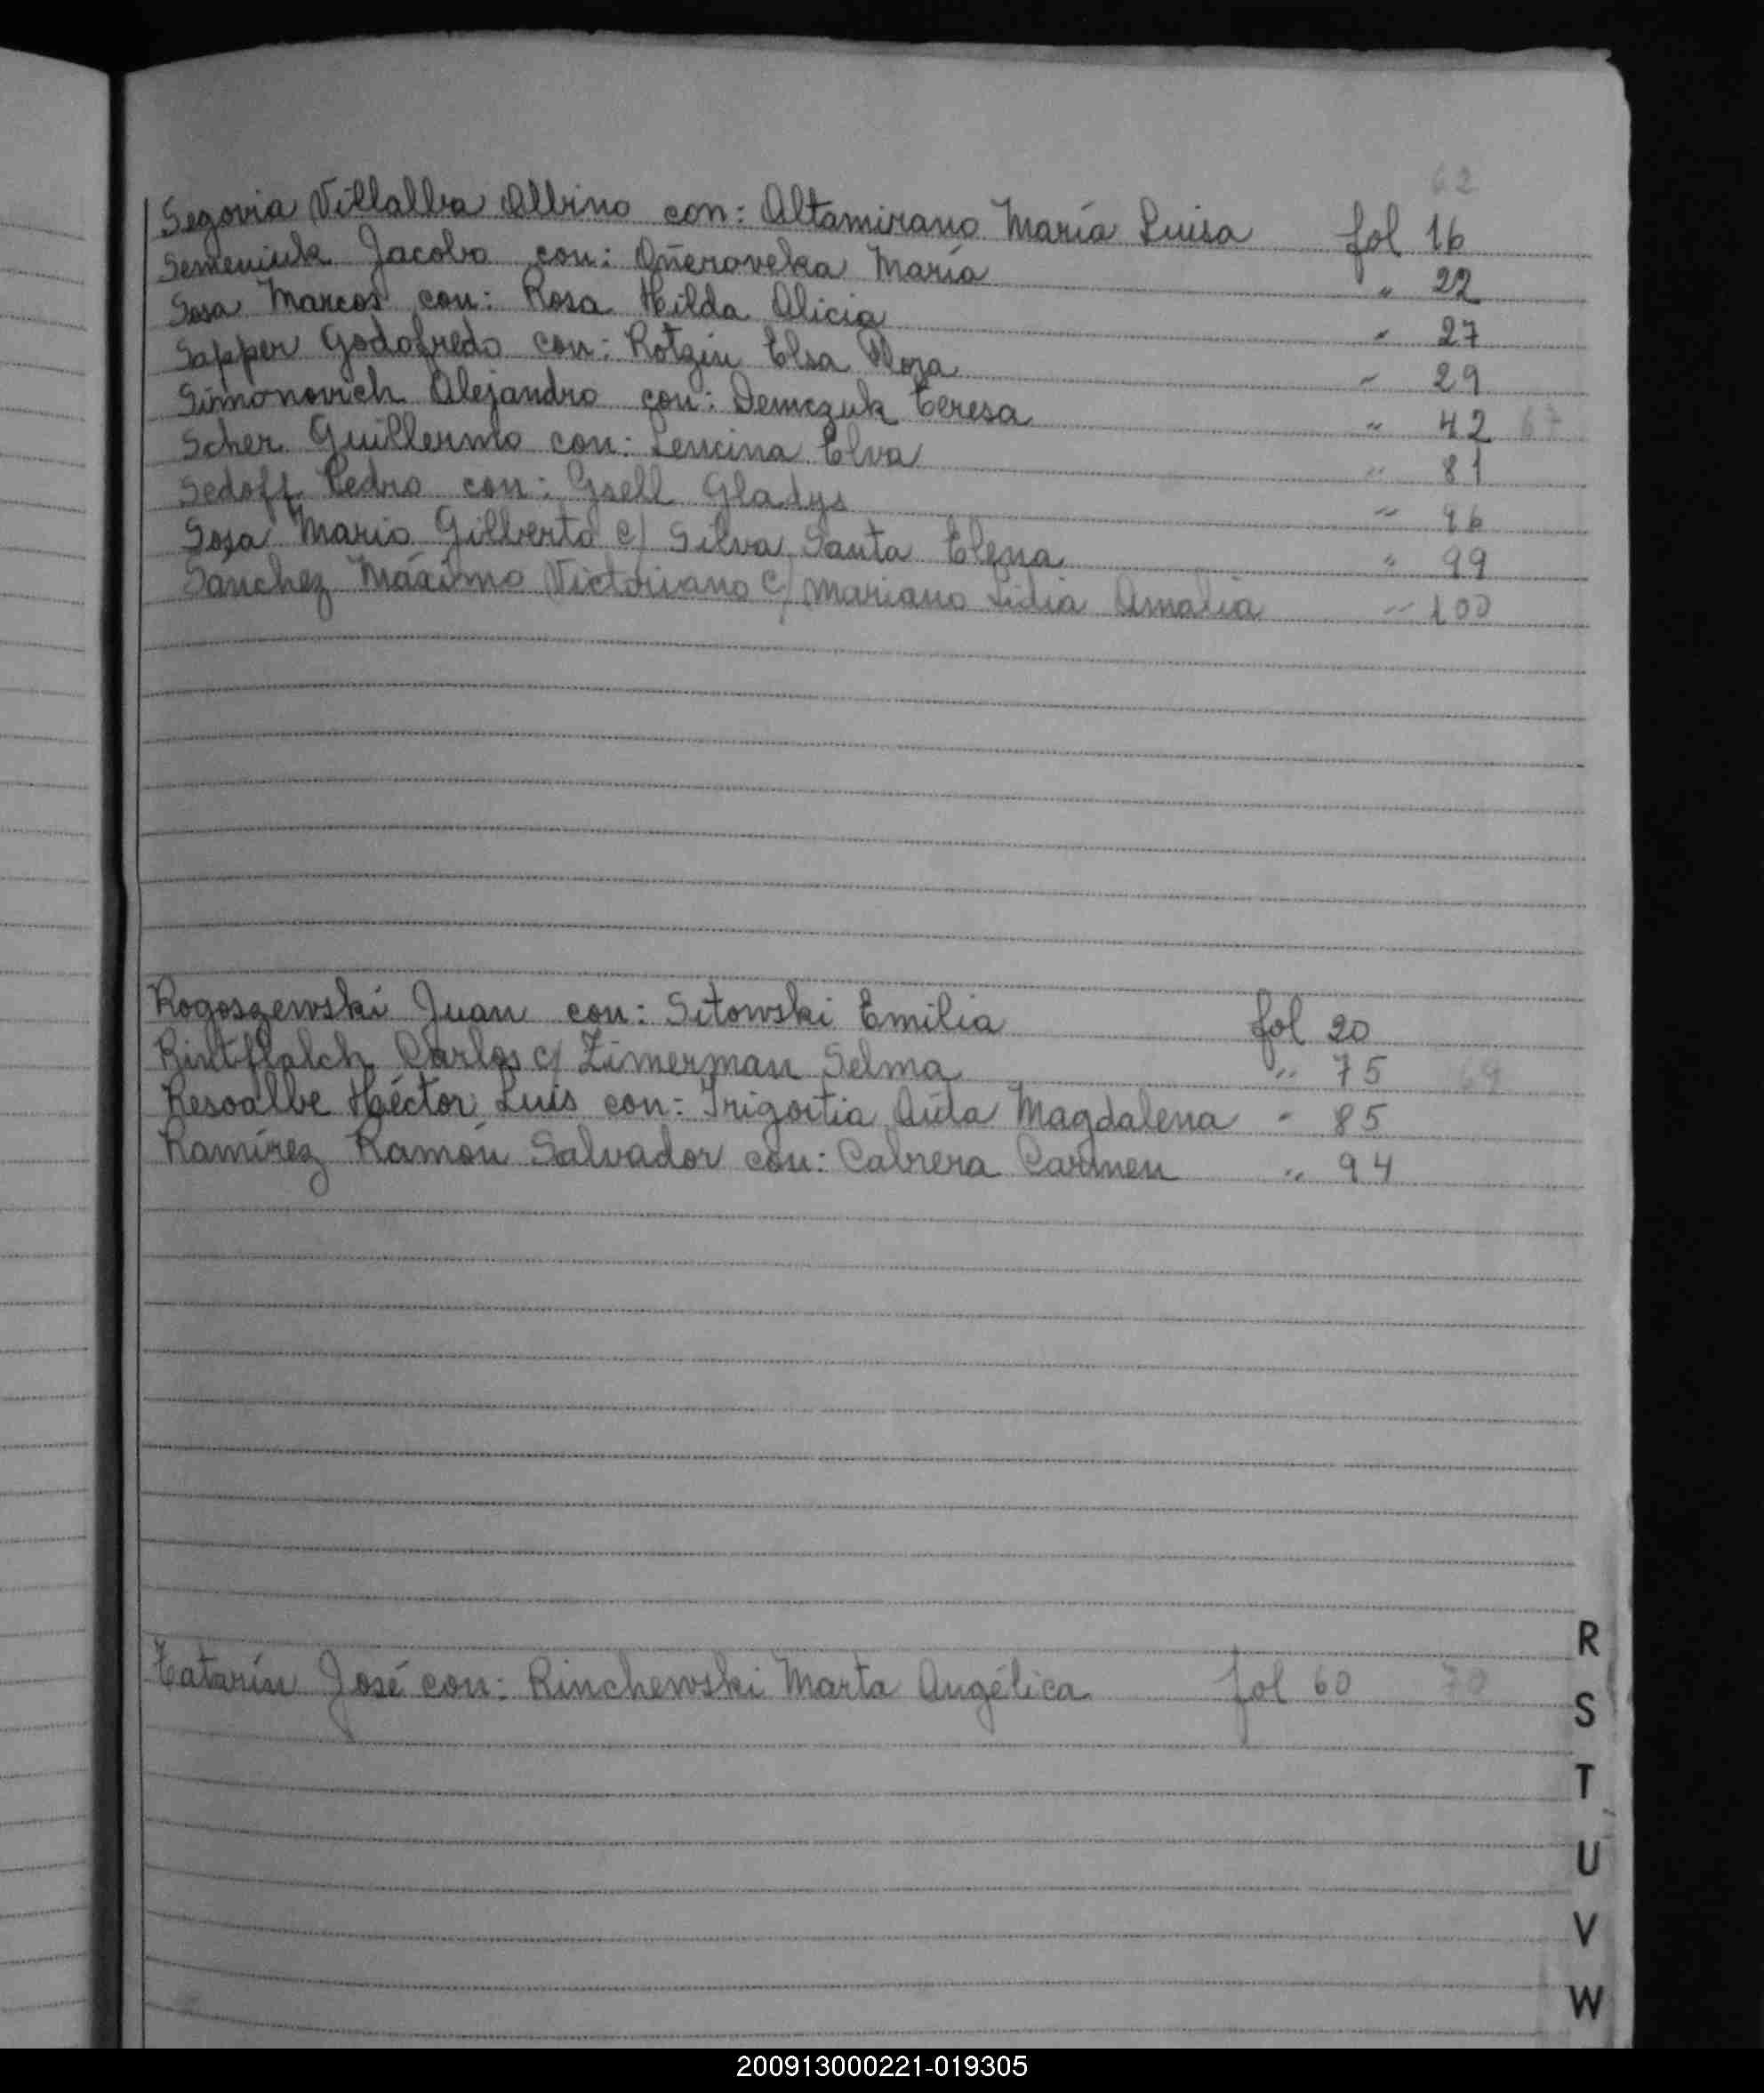 62
Segovia Villalba Albino con: Altamirano María Luisa fol 16
Semeniuk Jacobo con: Oñeroveka María " 22
Sosa Marcos con: Rosa Hilda Alicia " 27
Sapper Godofredo con: Rotzin Elsa Nora " 29
Simonovich Alejandro con: Demczuk Teresa " 42 67
Scher Guillermo con: Lencina Elva " 81
Sedoff Pedro con: Gsell Gladys " 96
Sosa Mario Gilberto c/ Silva Santa Elena " 99
Sánchez Máximo Victoriano c/ Mariano Lidia Amalia " 100
Rogoszewski Juan con: Sitowski Emilia fol 20
Rintflalch Carlos c/ Zimerman Selma " 75 69
Resoalbe Héctor Luis con: Irigoitia Aída Magdalena " 85
Ramírez Ramón Salvador con: Cabrera Carmen " 94
R
Tatarín José con: Rinchewski Marta Angélica fol 60 70
S
T
U
V
W
200913000221-019305